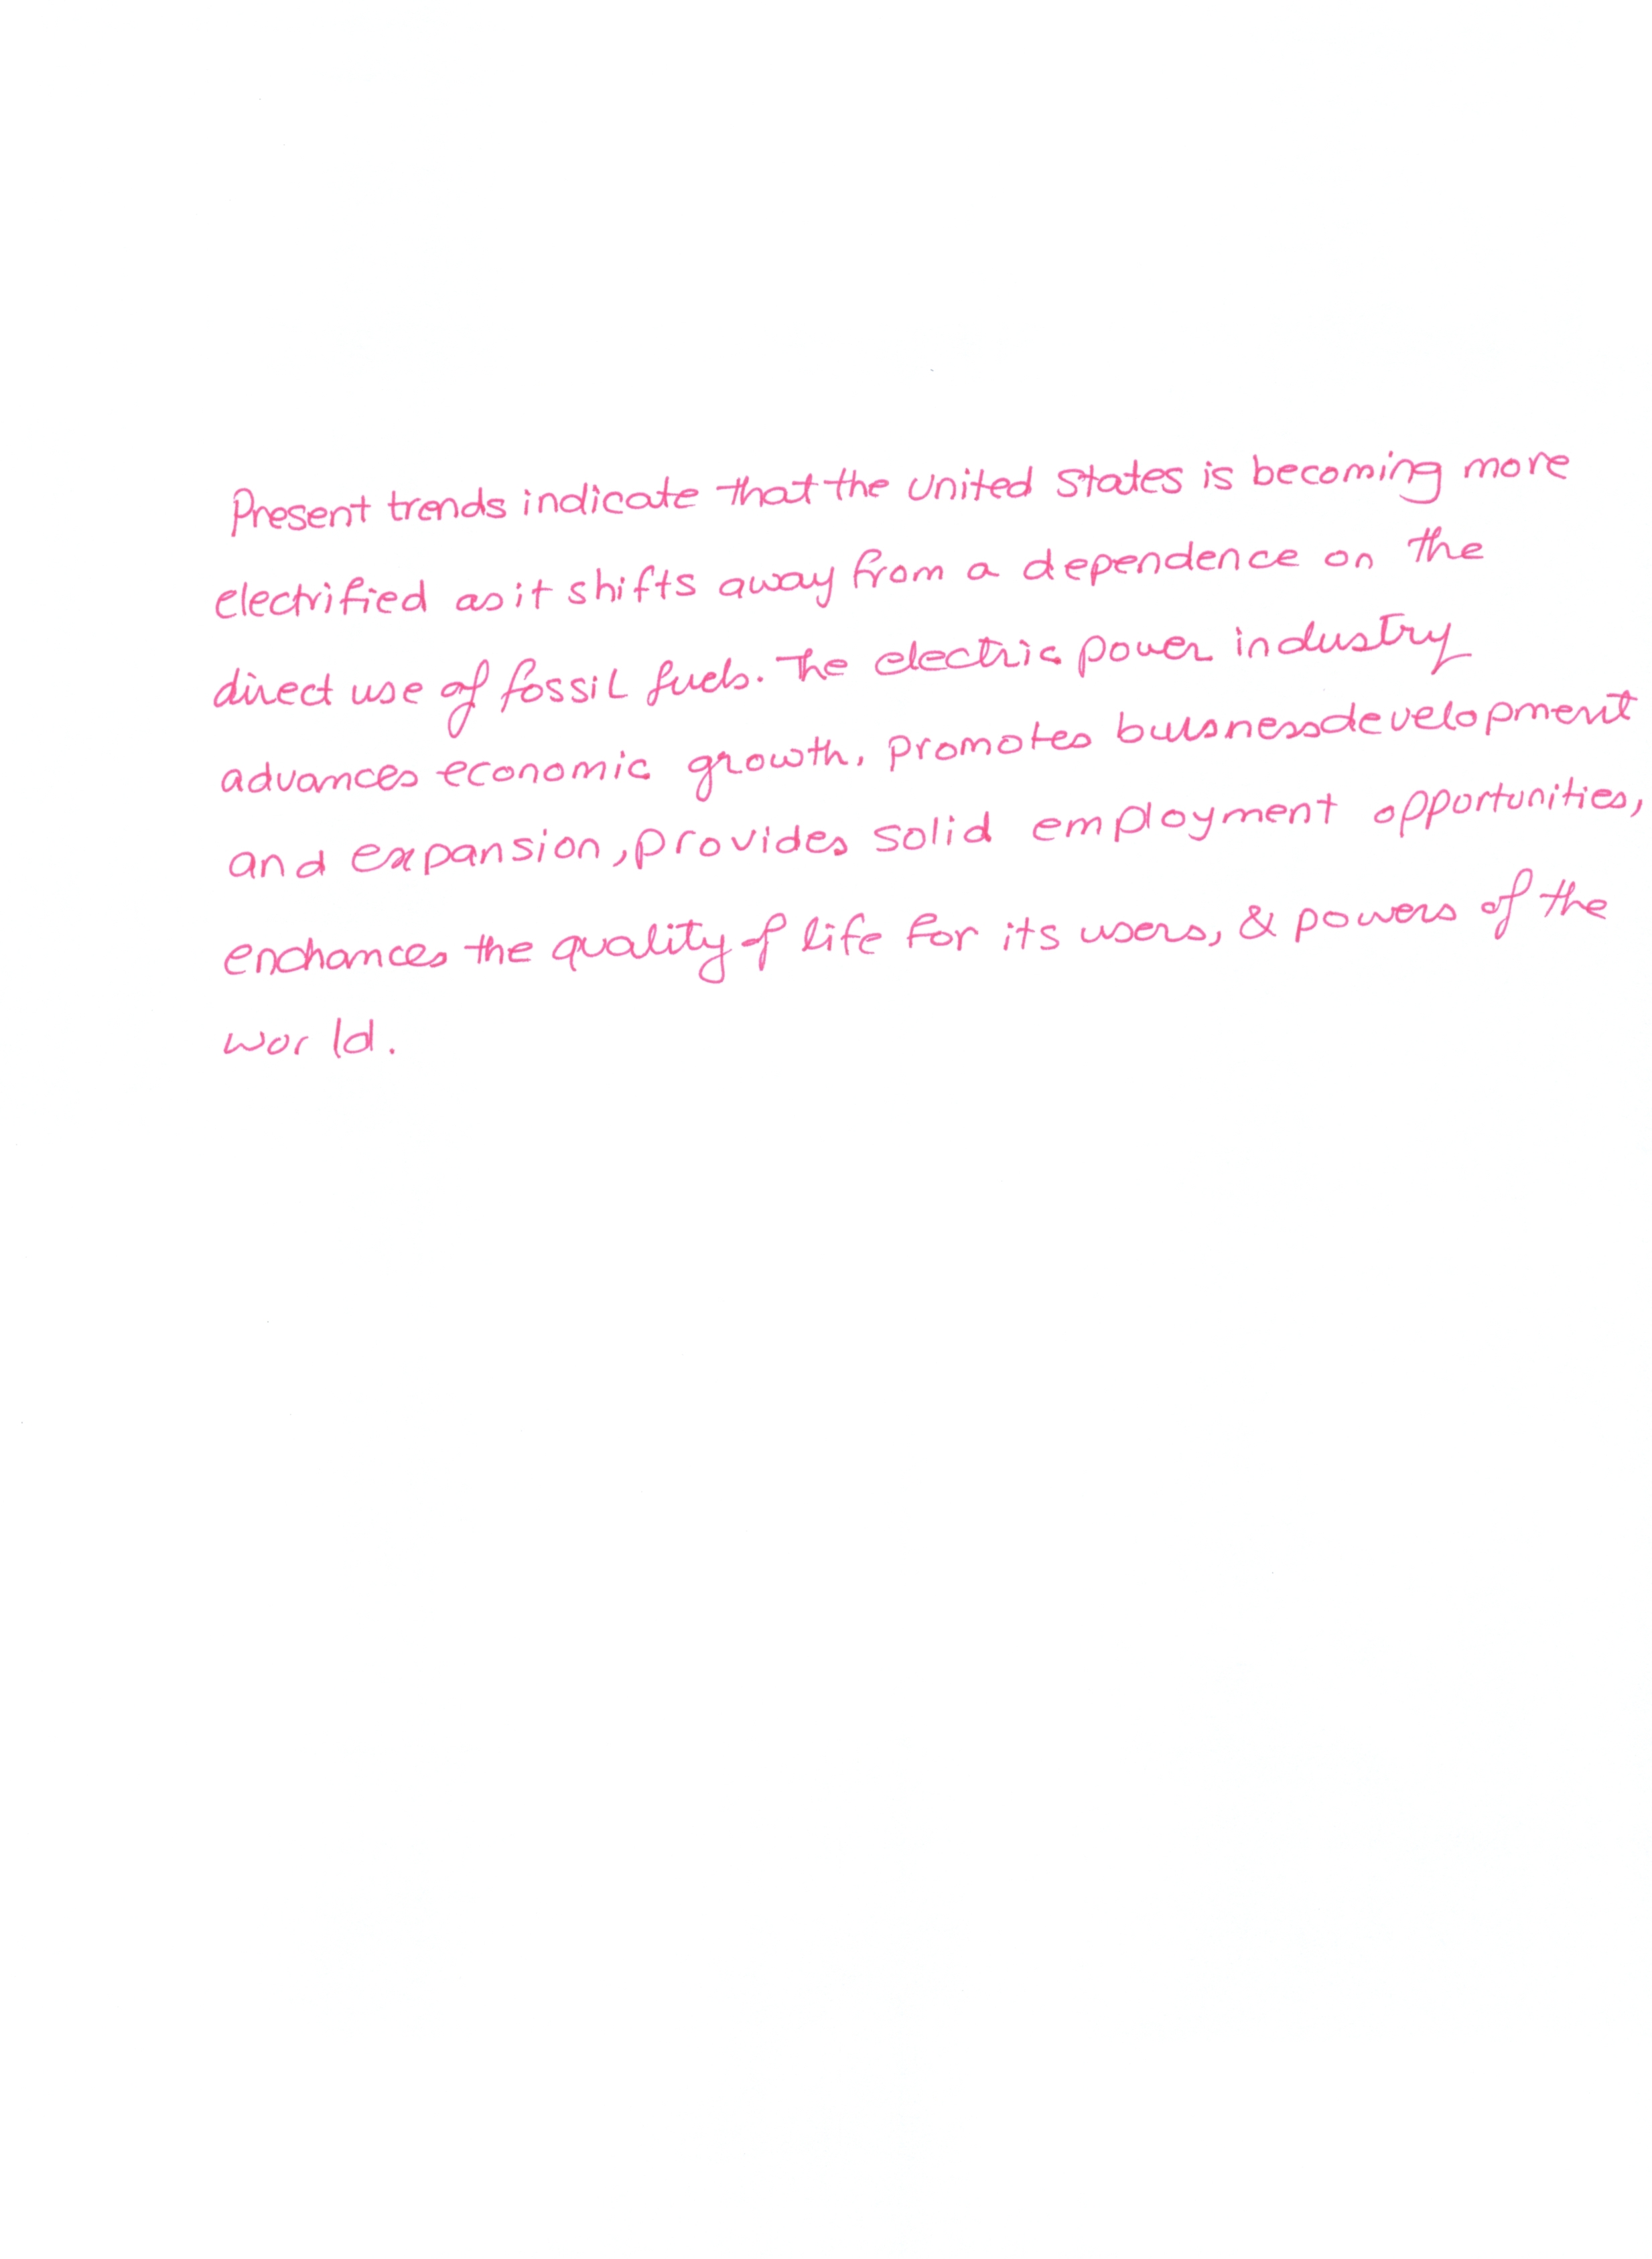 Present trends indicate that the united states is becoming more
electrified as it shifts away from a dependence on the
direct use of fossil fuels. The electric power industry
advances economic growth, promotes buisness development
and expansion, provides solid employment opportunities,
enchances the quality of life for its users, & powers of the
world.